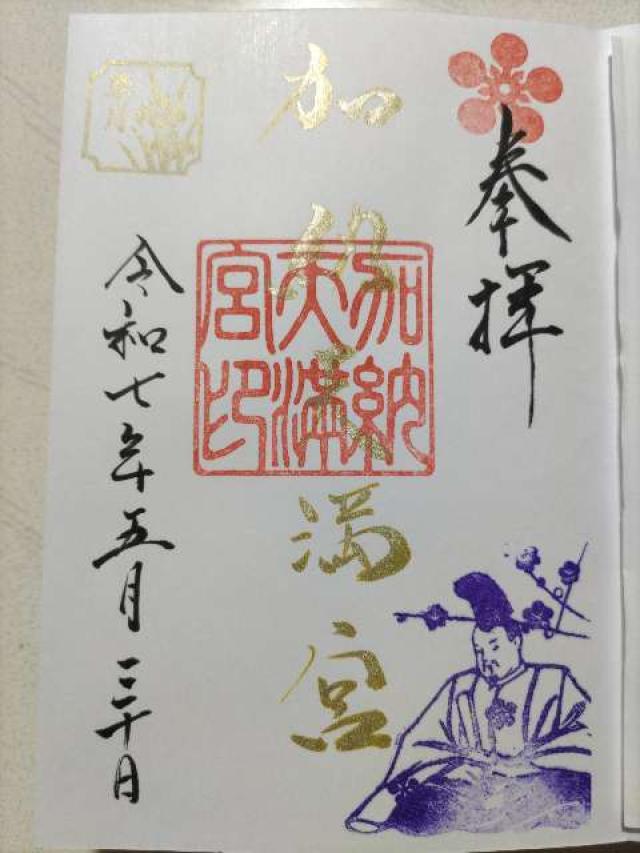 奉拝
加納天満宮
加納天満宮印
令和七年五月三十日
皐月